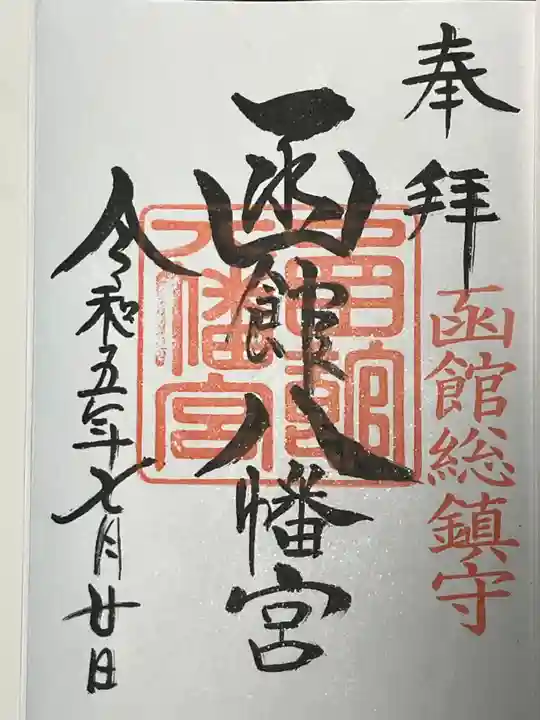 奉拝
函館総鎮守
函館八幡宮
函館
八幡宮
令和五年七月廿日